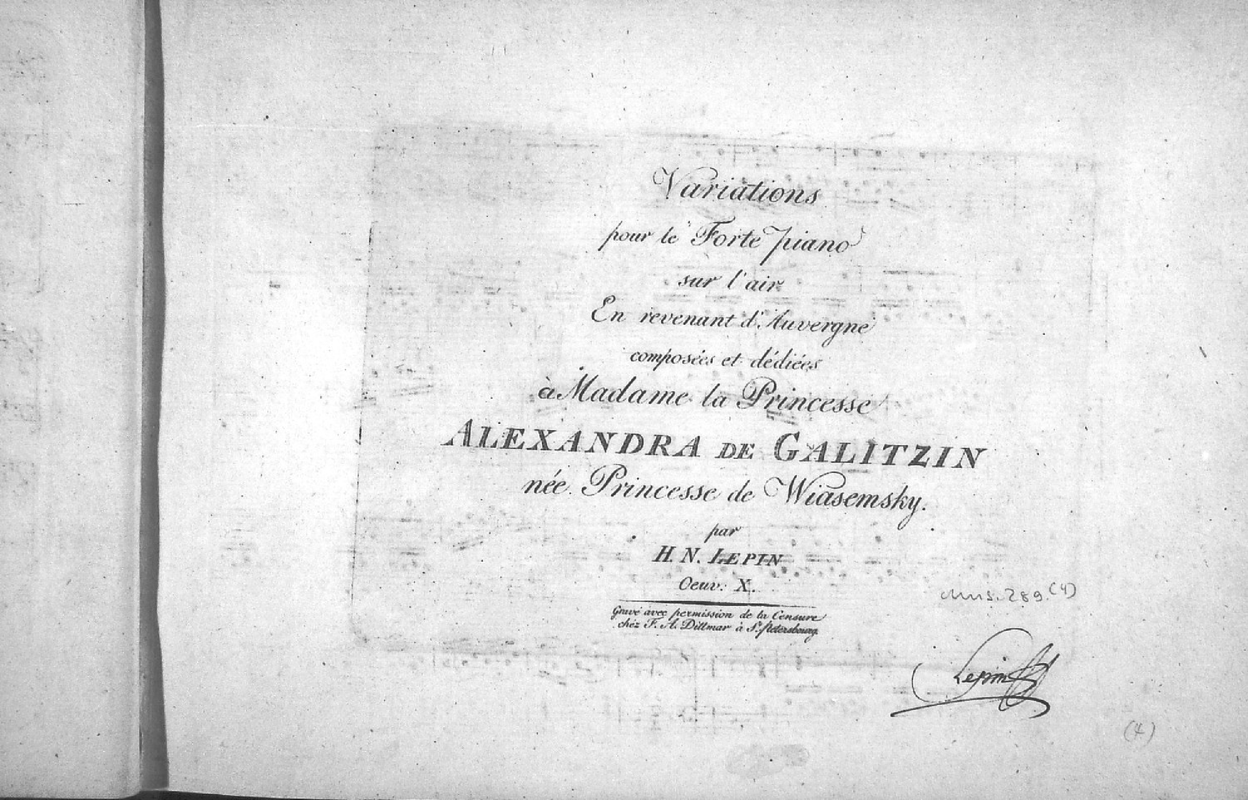 Variations
pour le Forte piano
sur l'air
En revenant d'Auvergne
composées et dédiées
à Madame la Princesse
ALEXANDRA DE GALITZIN
née Princesse de Wiasemsky.
par
H. N. LEPIN
Oeuv: X.
Gravé avec permission de la Censure
chez F. A. Dittmar à St. Petersbourg.
Mus. 289.(4)
Lepin
(4)